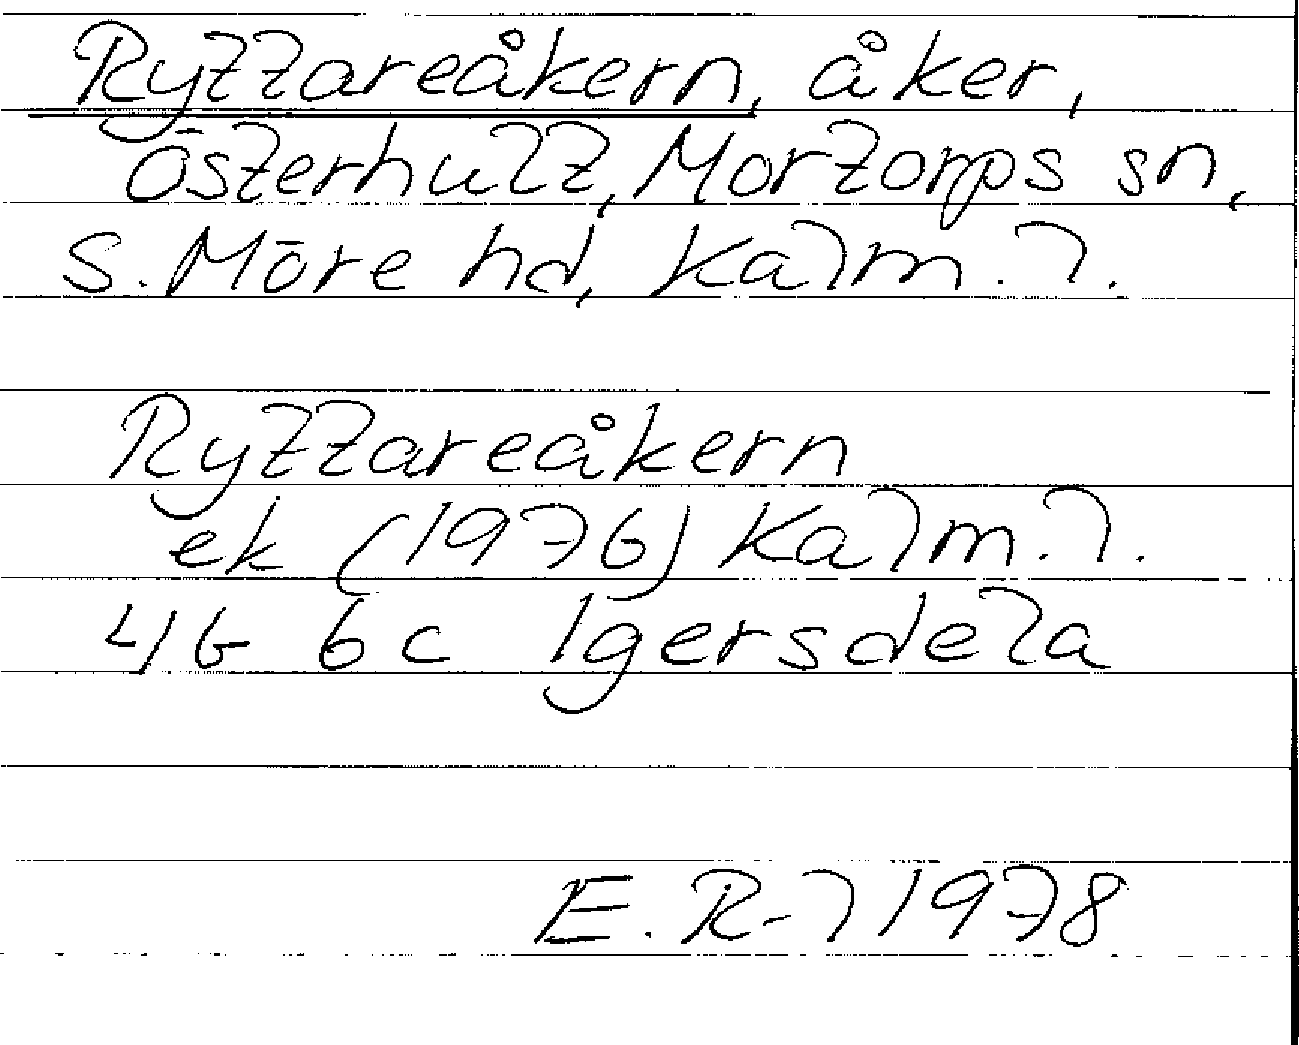 Ryttareåkern, åker,
Österhult, Mortorps sn,
S. Möre hd, Kalm. l.
Ryttareåkern
ek (1976) Kalm. l.
4G 6c Igersdela
E. R-l 1978